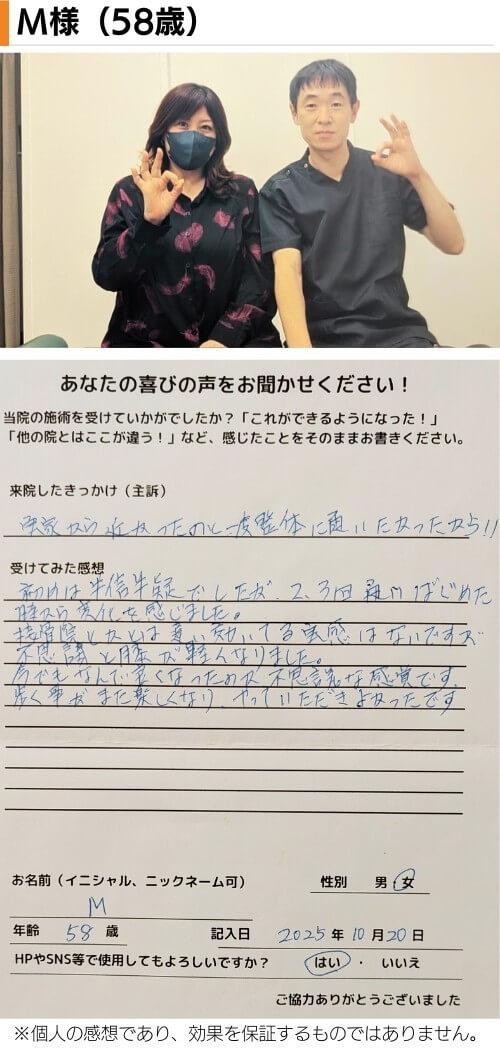 M様（58歳）
あなたの喜びの声をお聞かせください！
当院の施術を受けていかがでしたか？「これができるようになった！」
「他の院とはここが違う！」など、感じたことをそのままお書きください。
来院したきっかけ（主訴）
実家から近かったのと一度整体に通いたかったから!!
受けてみた感想
初めは半信半疑でしたが、2、3回 通いはじめた
膝から変化を感じました。
接骨院とかとは違い効いてる実感はないですが
不思議と膝が軽くなりました。
今でもなんで良くなったのか不思議な感覚です。
歩く事がまた楽しくなり、やっていただきよかったです
お名前（イニシャル、ニックネーム可）
性別 男・女
M
年齢 58 歳 記入日 2025年10月20日
HPやSNS等で使用してもよろしいですか？ はい ・ いいえ
ご協力ありがとうございました
※個人の感想であり、効果を保証するものではありません。